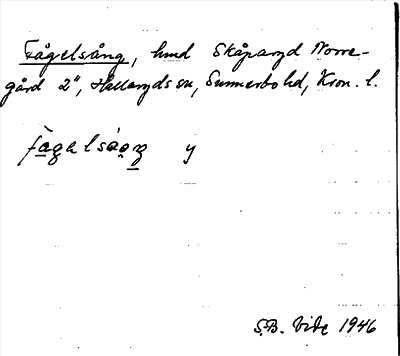 Fågelsång, hmd Skåparyd Norre-
gård 2⁴, Hallaryds sn, Sunnerbo hd, Kron. l.
fàgəlsáoŋ y
S.B. Vide 1946